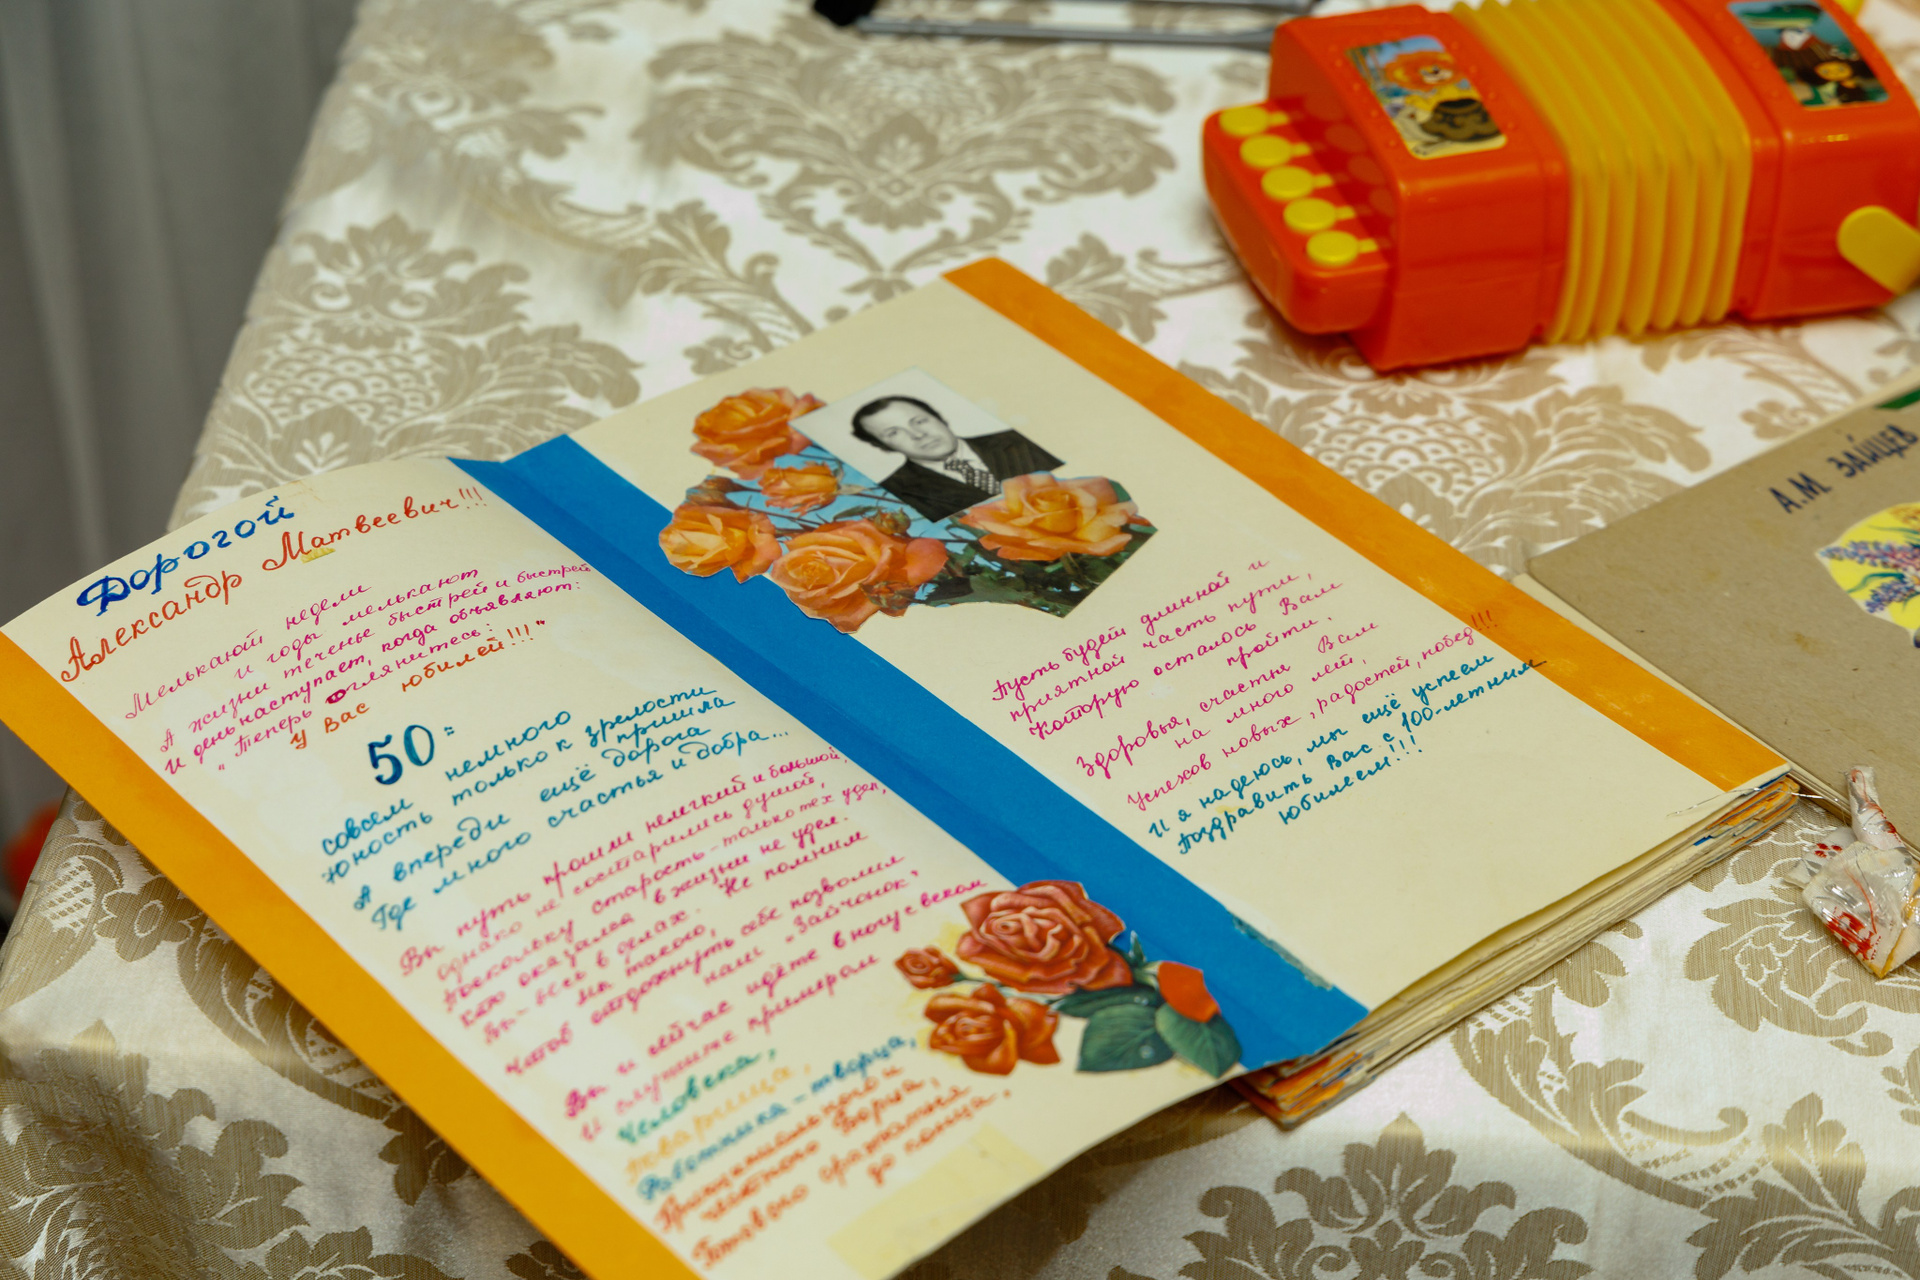 Дорогой
Александр Матвеевич!!!
Мелькают недели
и годы мелькают
А жизни теченье быстрей и быстрей
И день наступает, когда объявляют:
"Теперь оглянитесь:
У Вас юбилей!!!"
50 =
совсем немного
Юность только к зрелости пришла
А впереди ещё дорога
Где много счастья и добра...
Вы путь прошли нелегкий и большой,
однако не состарились душой,
Поскольку старость - только тех удел,
Кто оказался в жизни не у дел.
Вы - весь в делах. Не помним
мы такого,
Чтоб отдохнуть себе позволил
наш "Зайчонок"
Вы и сейчас идёте в ногу с веком
И служите примером
Человека,
Товарища,
Работника - творца,
Принципиального и
честного Борца,
Готового сражаться
до конца.
Пусть будет длинной и
приятной часть пути,
Которую осталось Вам
пройти.
Здоровья, счастья Вам
на много лет,
Успехов новых, радостей, побед!!!
И я надеюсь, мы ещё успеем
Поздравить Вас с 100-летним
юбилеем!!!
А.М. ЗАЙЦЕВ